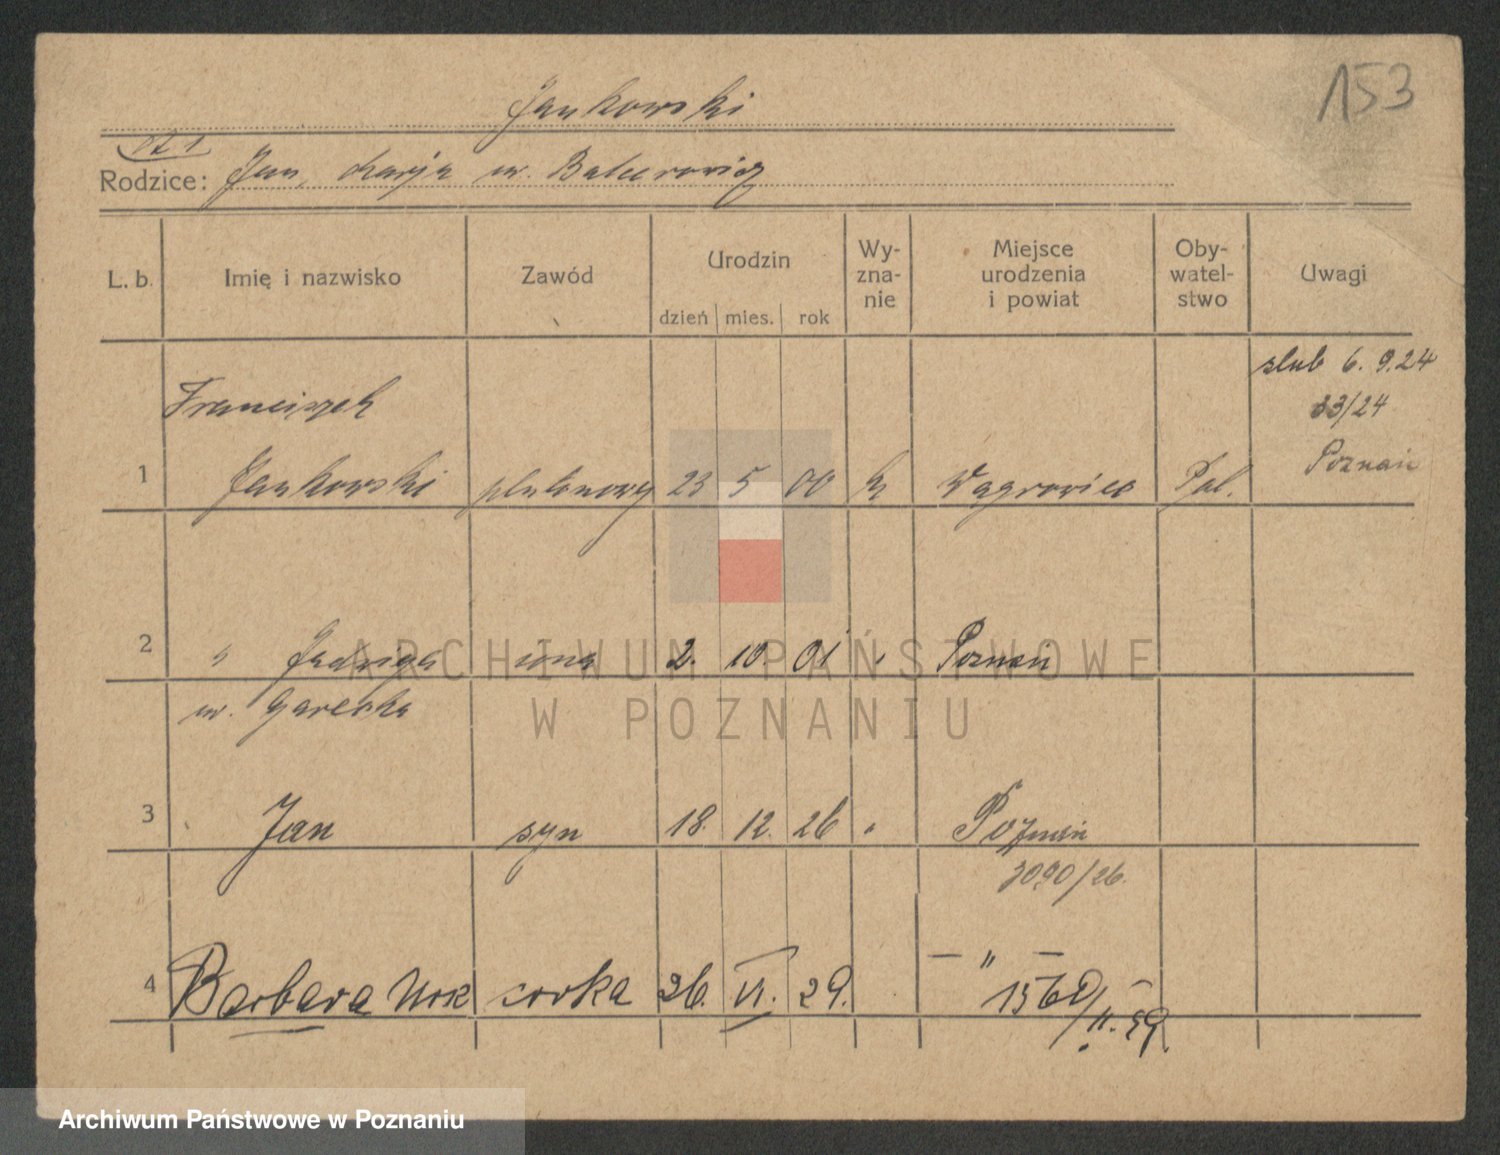 153
Jankowski
Rodzice: Jan, Marja ur. Balcerowicz
L. b. Imię i nazwisko Zawód Urodzin dzień mies. rok Wy-zna-nie Miejsce urodzenia i powiat Oby-watel-stwo Uwagi
ślub 6. 9. 24
33/24
Poznań
Franciszek
1 Jankowski plutonowy 23 5 00 Wągrowiec Pol.
2 " Jadwiga żona 2. 10. 01 " Poznań
ur. Garecka
3 Jan syn 18. 12. 26 " Poznań
3090/26.
4 Barbara córka 26. VI. 29. — " —
1560/II. 29.
ARCHIWUM PAŃSTWOWE
W POZNANIU
Archiwum Państwowe w Poznaniu